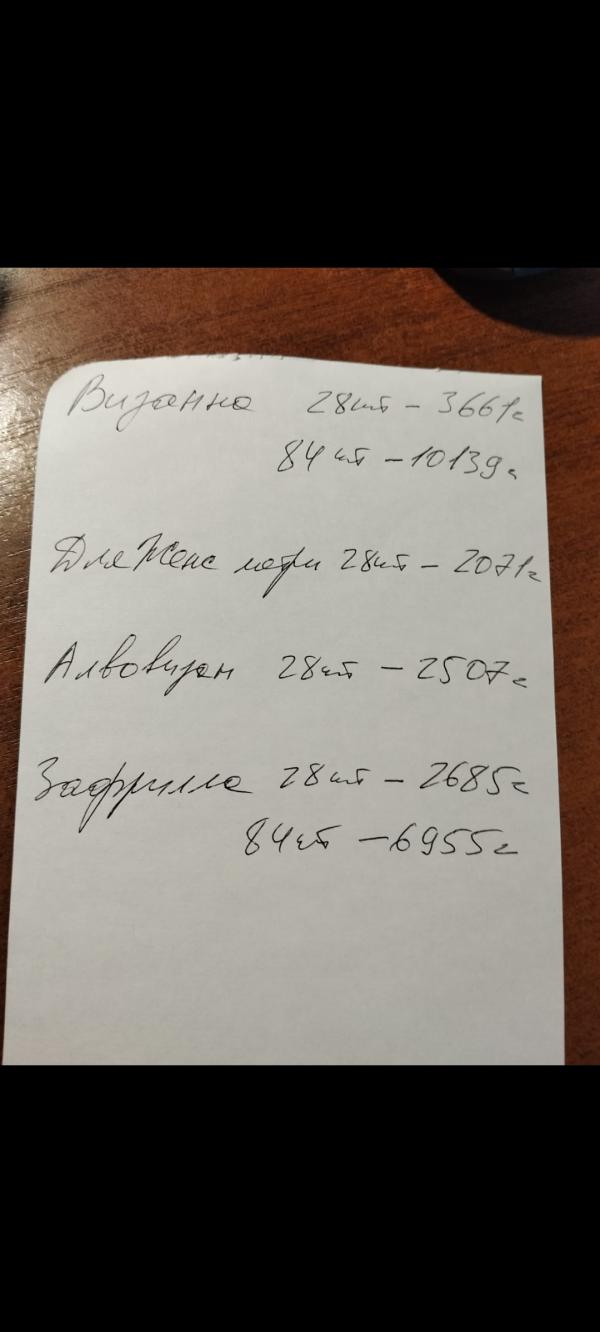 Визанна 28шт – 3661
84шт – 10139
ДляЖенс метри 28шт – 2071
Алвовизан 28шт – 2507
Зафрилла 28шт – 2685
84шт – 6955